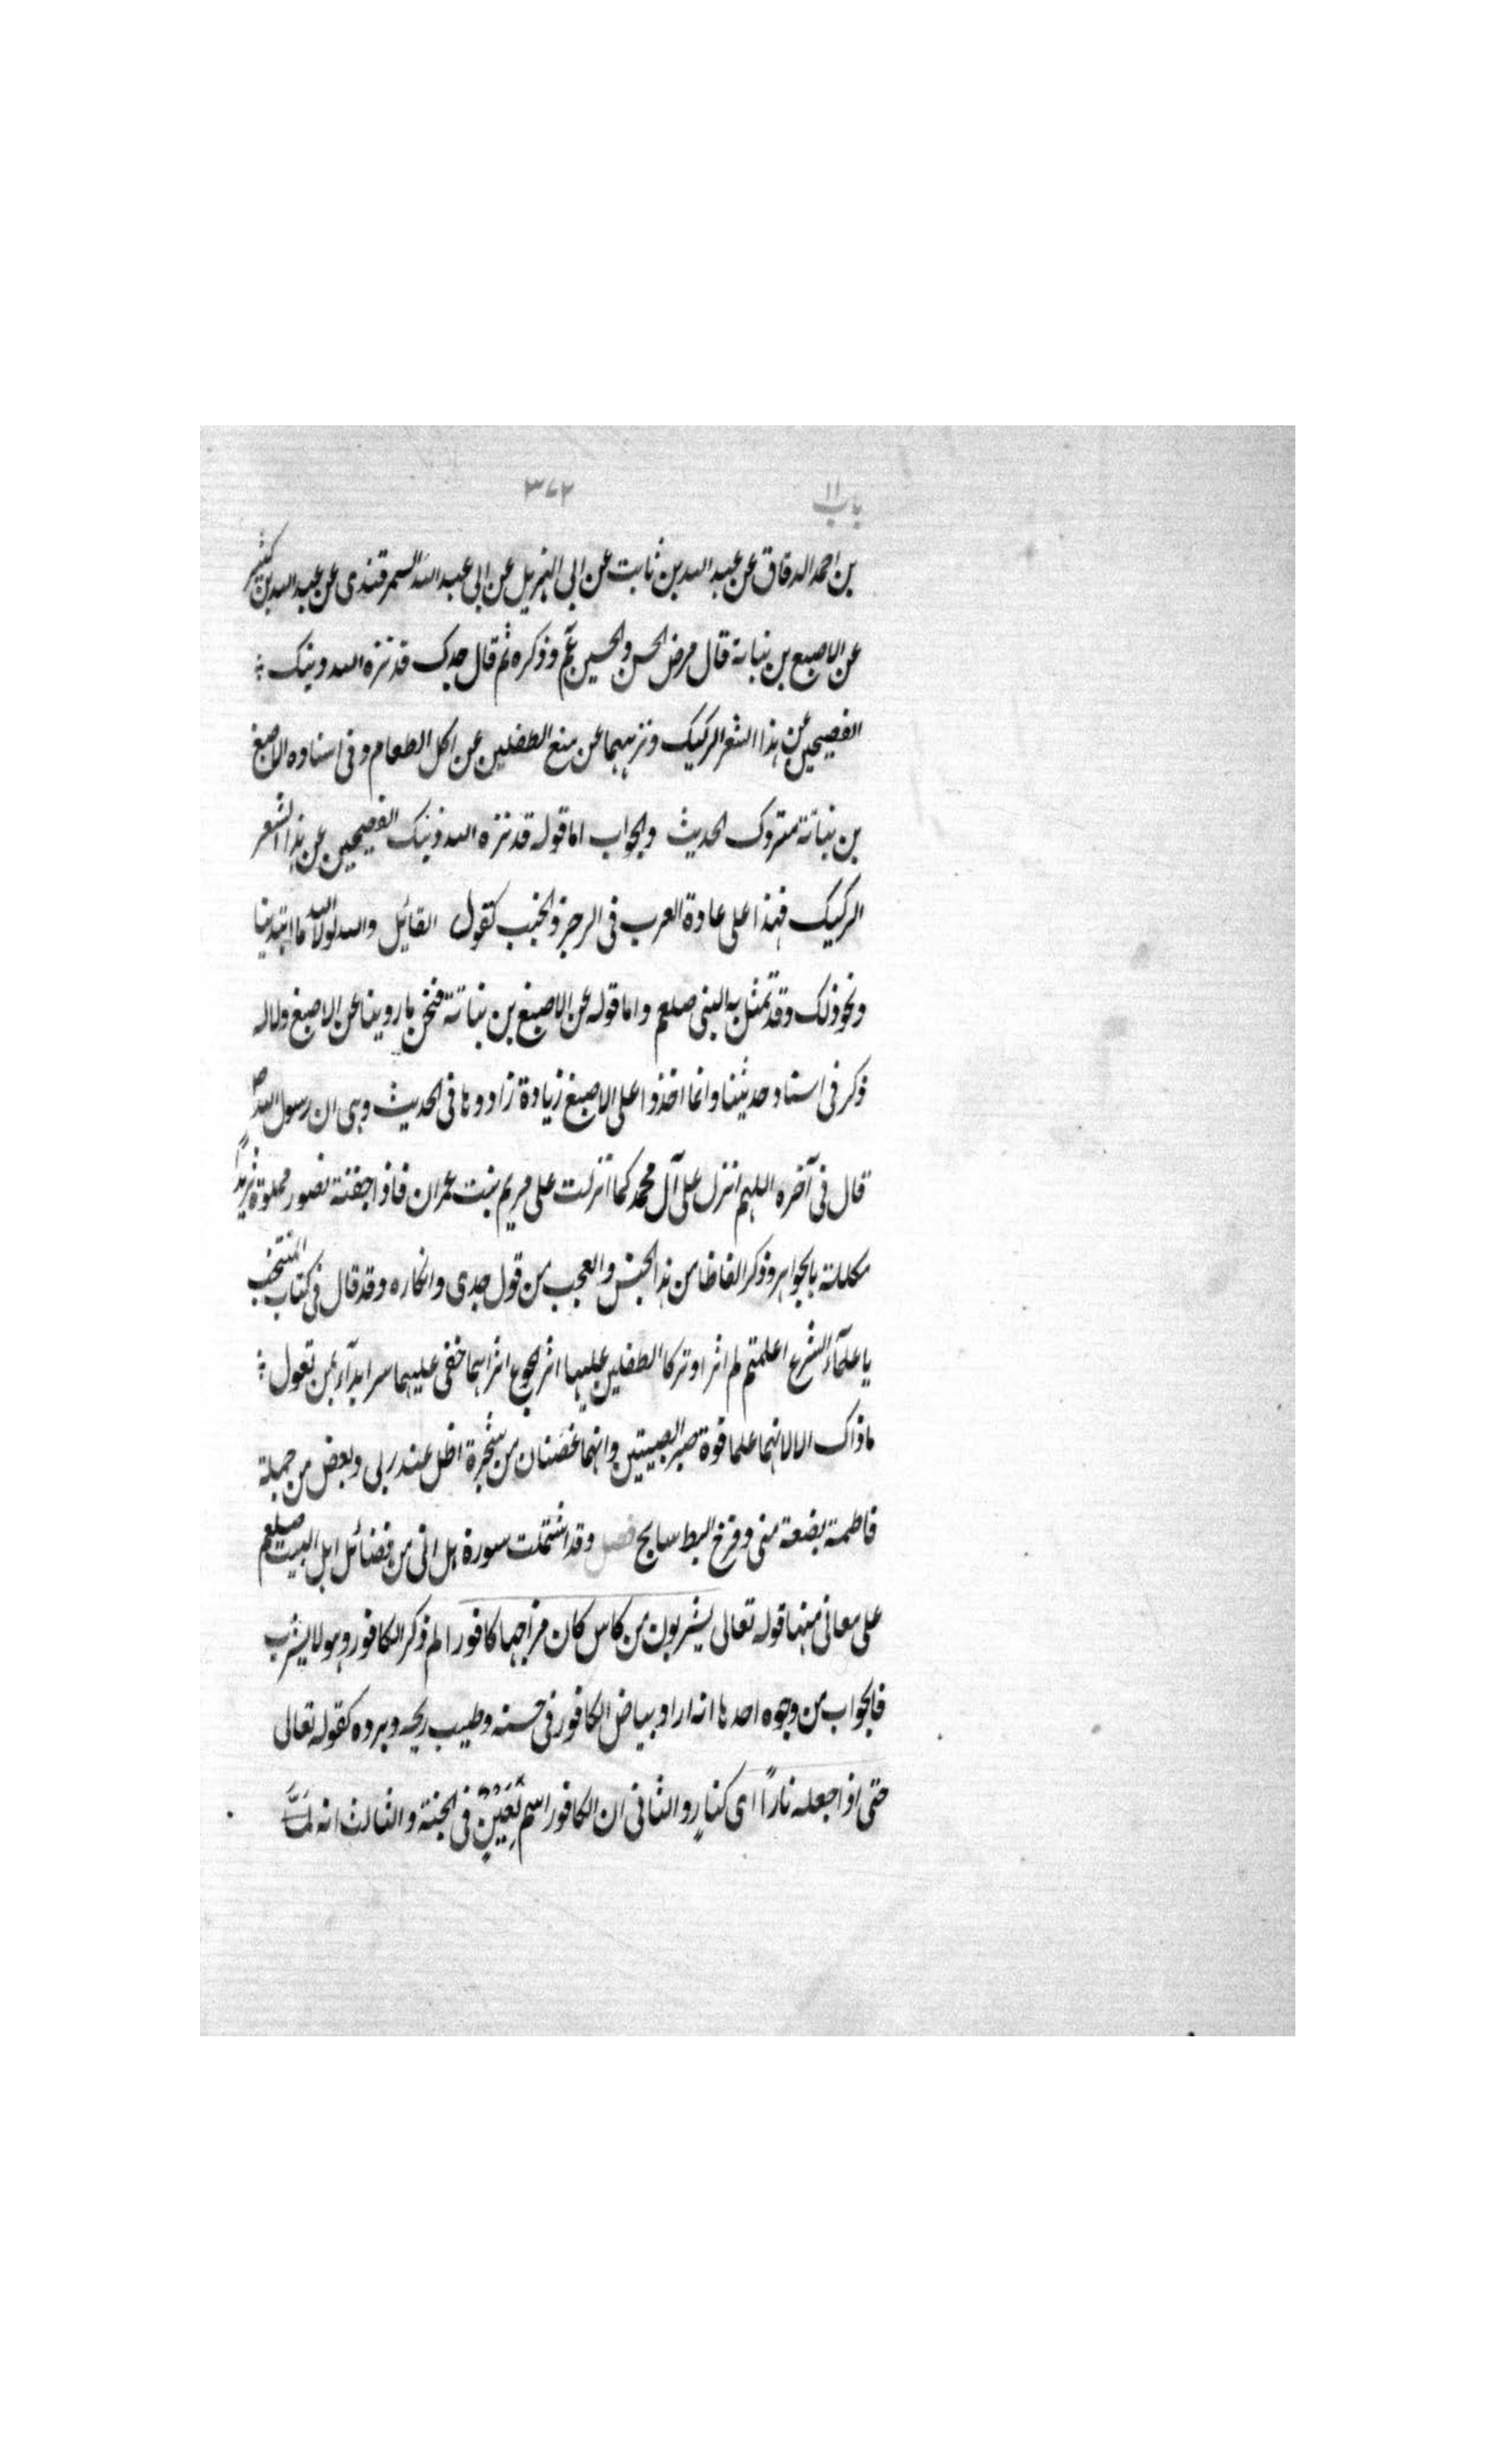 باب ١١ ٣٧٢
بن احمد الدقاق عن عبد الله بن ثابت عن ابي الهزيل عن ابي عبد الله السمرقندي عن عبد الله بن كثير
عن الاصبغ بن نباتة قال مرض الحسن والحسين عم وذكره ثم قال جدك قد نزه الله دينك
الفصيحين عن هذا الشعر الركيك ونزههما عن منع الطفلين عن اكل الطعام وفي اسناده الاصبغ
بن نباتة متروك الحديث والجواب اما قوله قد نزه الله ذينك الفصيحين عن هذا الشعر
الركيك فهذا على عادة العرب في الرجز والخبب كقول القائل والله لولا الله ما اهتدينا
ونحو ذلك وقد تمثل به النبي صلعم واما قوله عن الاصبغ بن نباتة فنحن ما روينا عن الاصبغ ولا له
ذكر في اسناد حديثنا وانما اخذوا على الاصبغ زيادة زادوها في الحديث وهي ان رسول الله ص
قال في آخره اللهم انزل على آل محمد كما انزلت على مريم بنت عمران فاذا جفنة تفور مملوة ثريدًا
مكللة بالجواهر وذكر الفاظا من هذا الجنس والعجب من قول جدي وانكاره وقد قال في كتاب المنتخب
يا علمآء الشرع اعلمتم لم اثرا وتركا الطفلين عليهما اثر الجوع اتراهما خفي عليهما سر ابدآء بمن تعول
ما ذاك الا لانهما علما قوة صبر الصبيتين وانهما غصنان من شجرة اظل عند ربي وبعض من جملة
فاطمة بضعة مني وفرخ البط سابح فصل وقد اشتملت سورة هل اتى من فضائل اهل البيت صلعم
على معاني منها قوله تعالى يشربون من كاس كان مزاجها كافورا لم ذكر الكافور وهو لا يشرب
فالجواب من وجوه احدها انه اراد بياض الكافور في حسنه وطيب ريحه وبرده كقوله تعالى
حتى اذا جعله نارًا اي كنارٍ والثاني ان الكافور اسم لعينٍ في الجنة والثالث انه لمّا